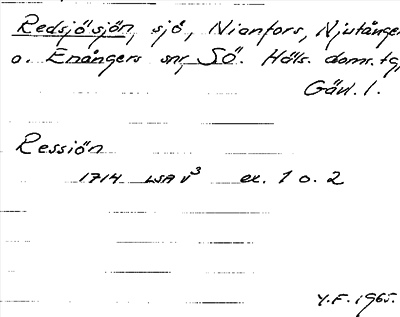 Redsjösjön, sjö, Nianfors, Njutånger
o. Enångers snr, SÖ. Häls. domr. tg,
Gävl. l.
Ressiön
1714 LSA V3 ex. 1 o. 2
Y.F. 1965.